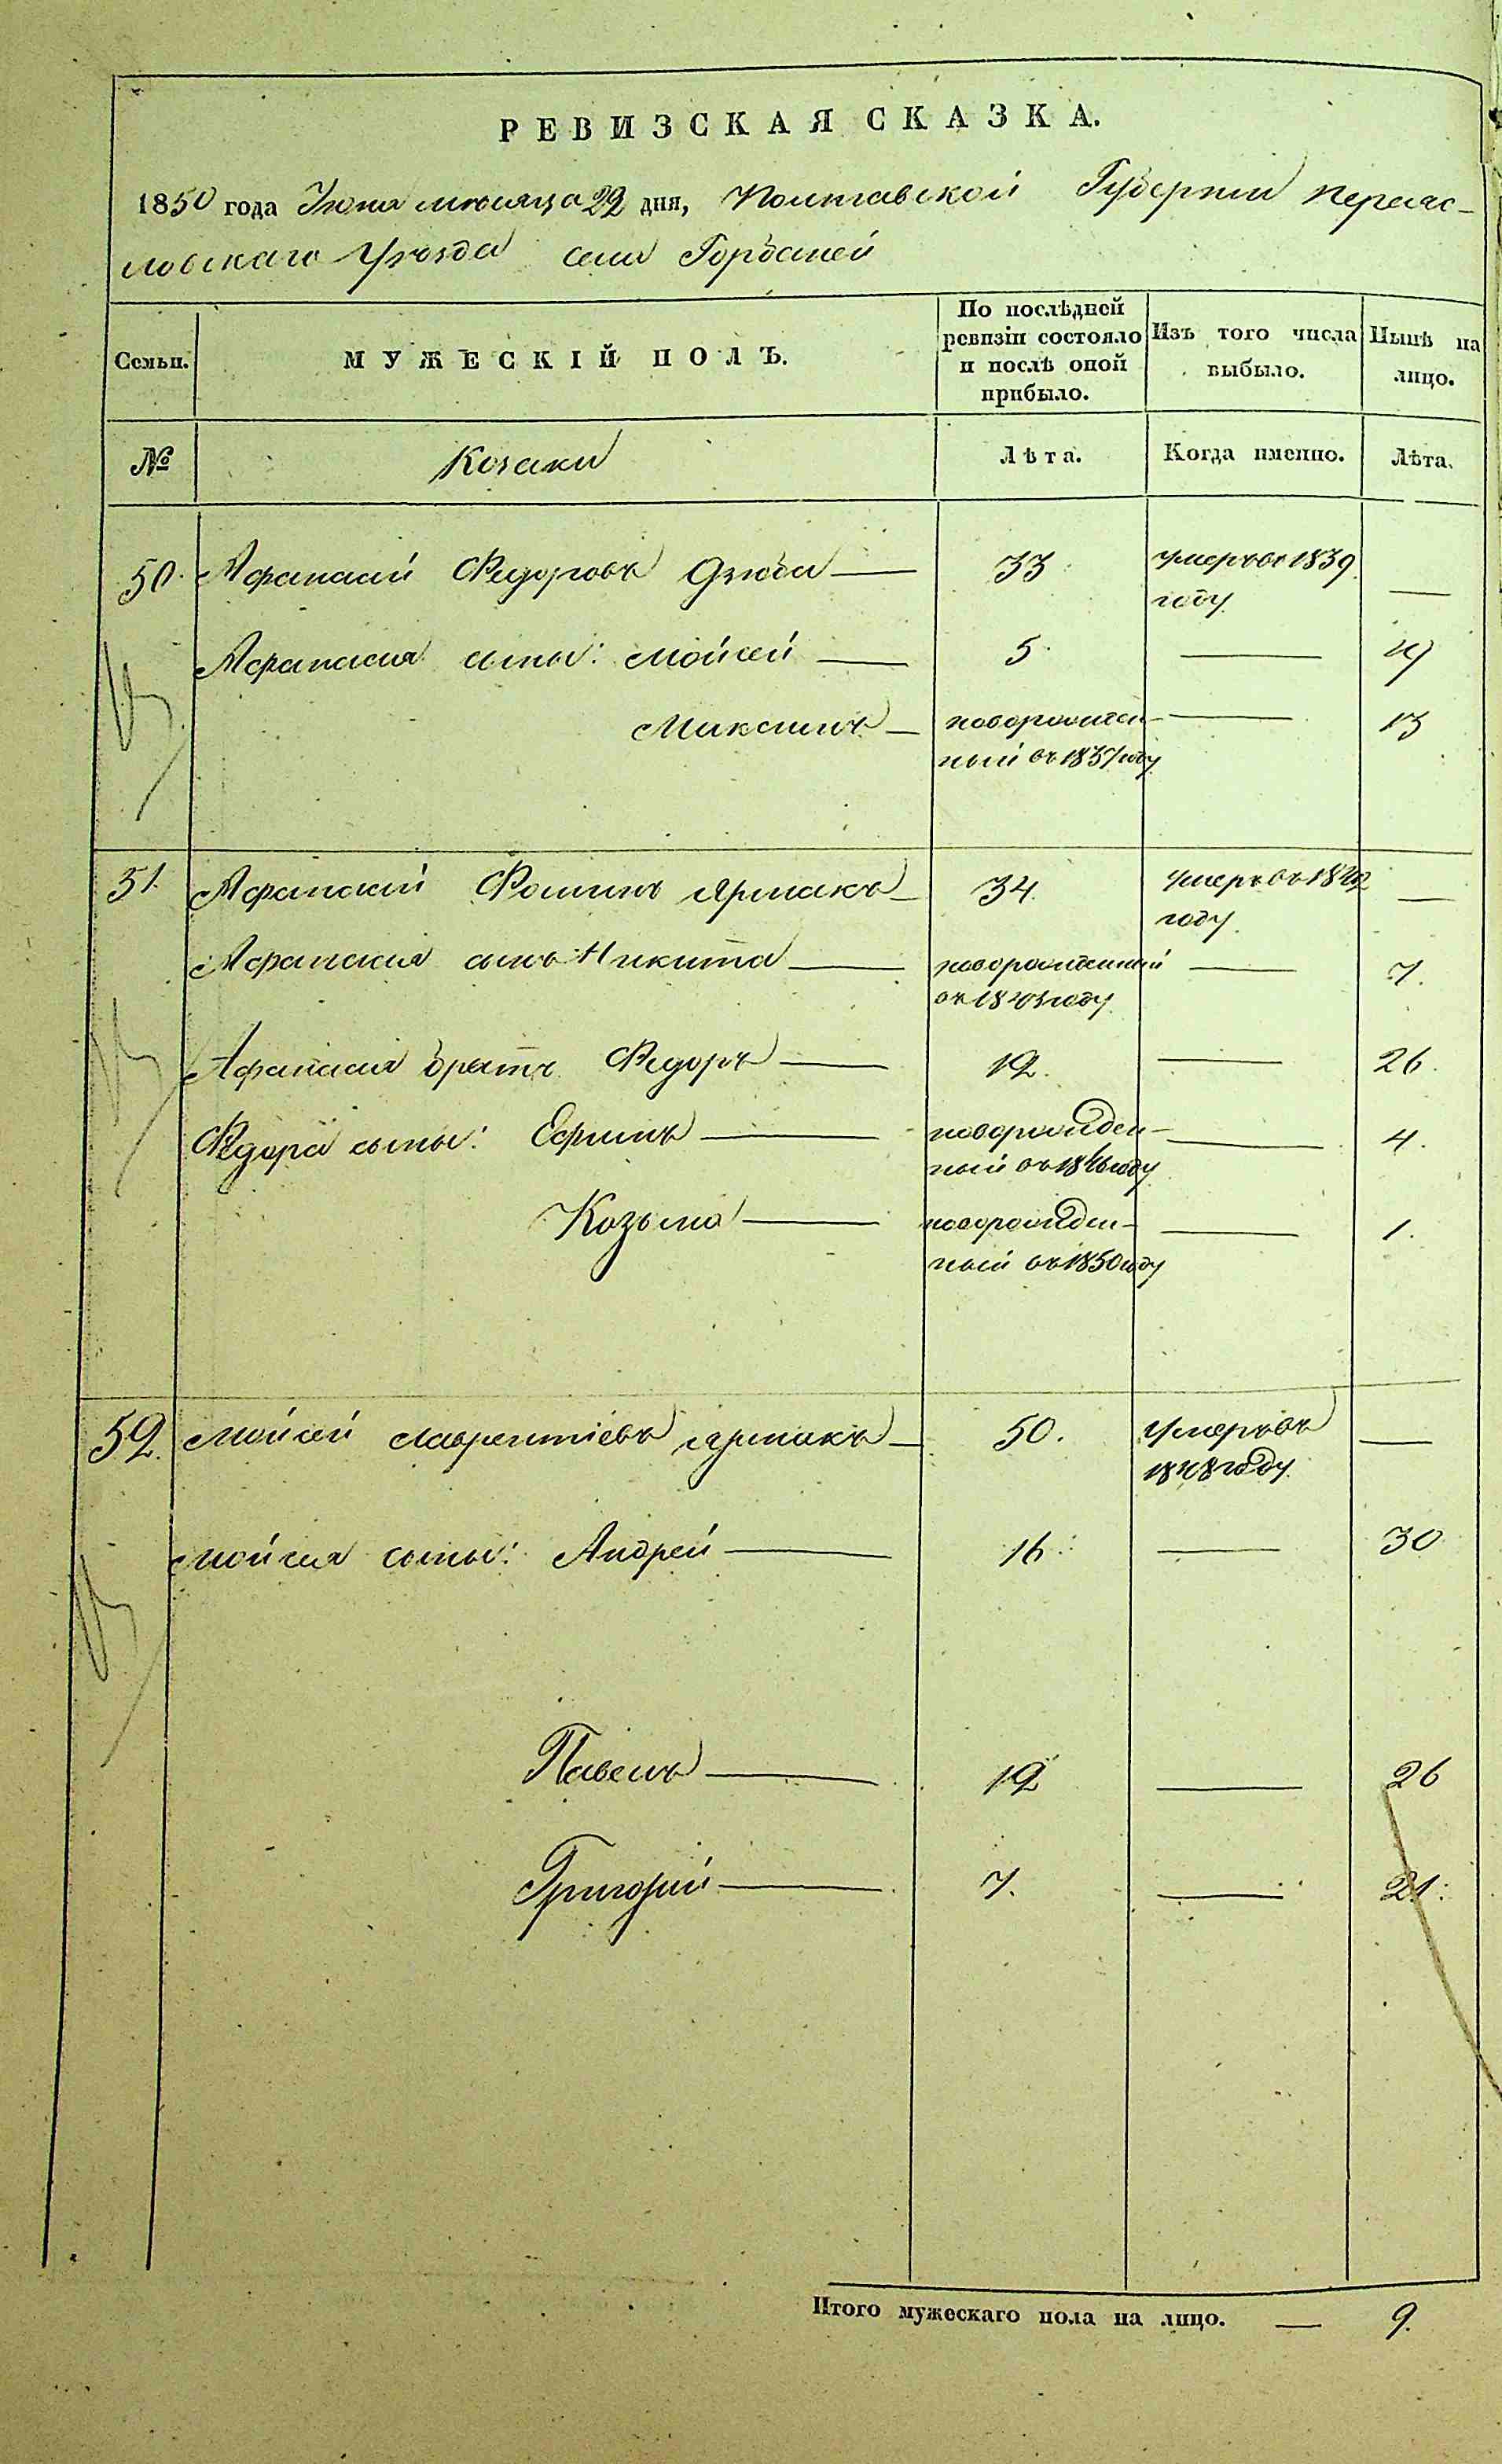 РЕВИЗСКАЯ СКАЗКА.
1850 года Июня мѣсяца 22 дня, Полтавской Губерніи Переяс-
ловскаго Уѣзда села Горбаней
Семьи.
МУЖЕСКІЙ ПОЛЪ.
По послѣдней ревизіи состояло и послѣ оной прибыло.
Изъ того числа выбыло.
Нынѣ на лицо.
№ Козаки Лѣта. Когда именно. Лѣта.
50. Афанасий Федоровъ Дзюба — 33 умеръ въ 1839 —
году
Афанасия сыны: Мойсей — 5 — 19
Максимъ — новорожден- — 13
ный въ 1837 году
51. Афанасий Фоминъ Ярмакъ — 34 умеръ въ 1842 —
году
Афанасия сынъ Никита — новорожденный — 7.
въ 1843 году
Афанасия братъ Федоръ — 12. — 26.
Федора сыны: Ефимъ — новорожден- — 4.
ный въ 1846 году
Козьма — новорожден- — 1.
ный въ 1850 году
52. Мойсей Лаврентіевъ Ярмакъ — 50. Умеръ въ —
1848 году
Мойсея сыны: Андрей — 16. — 30
Павелъ — 12 — 26
Григорий — 7. — 21.
Итого мужескаго пола на лицо. — 9.